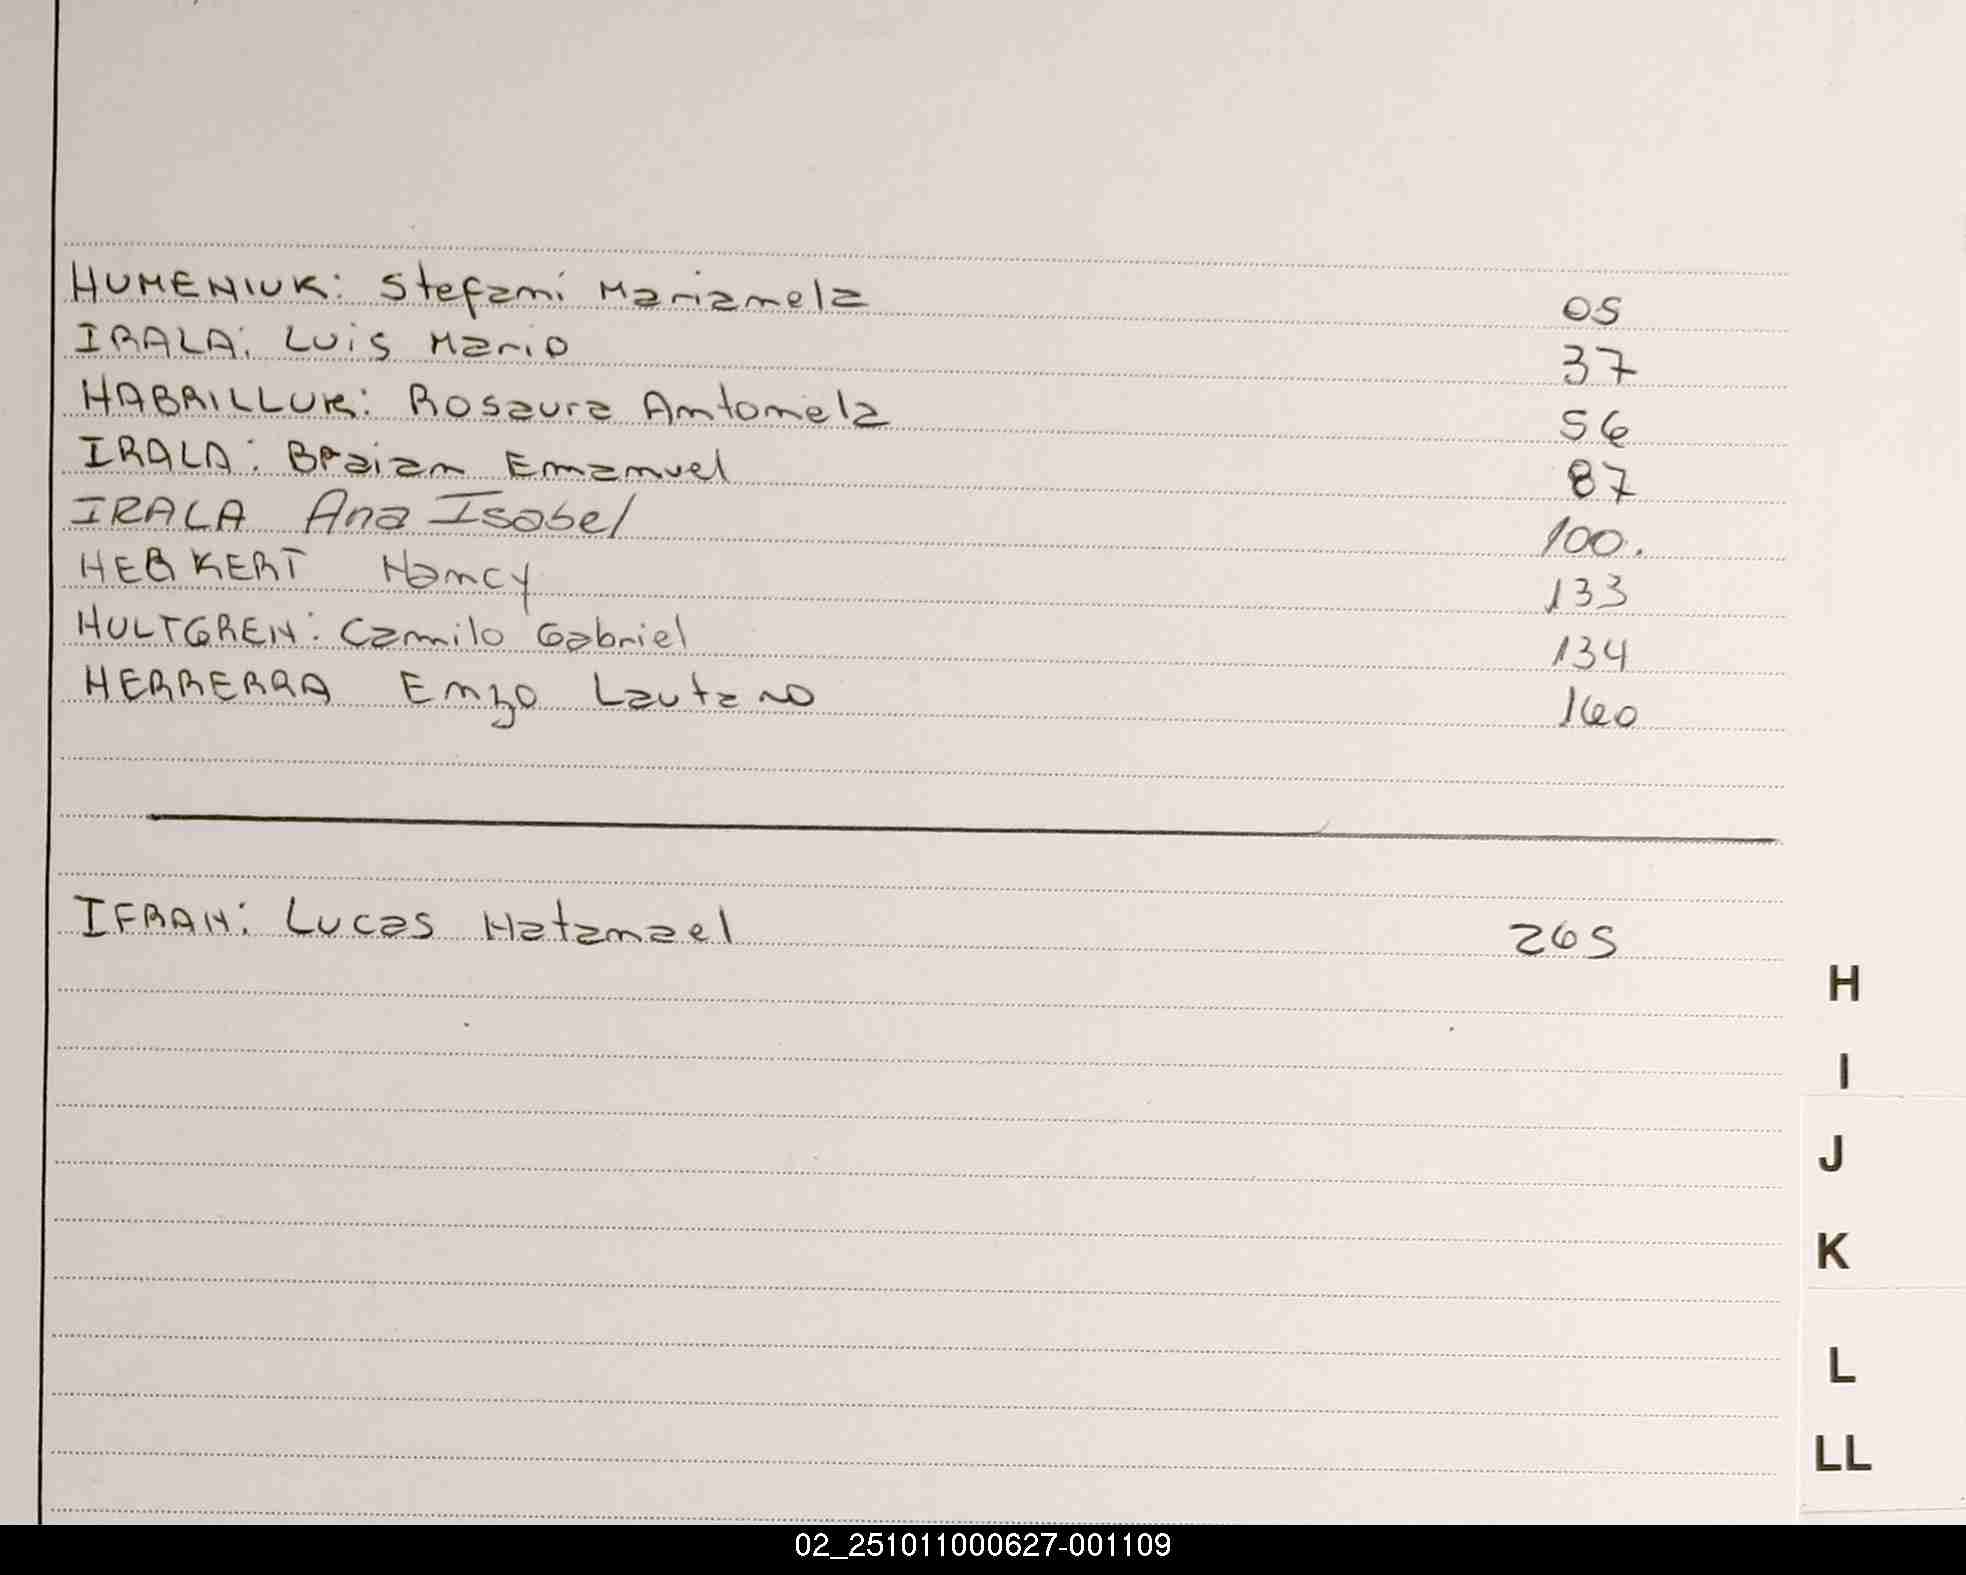 HUMENIUK: Stefani Marianela 05
IRALA: Luis Mario 37
HABRILLUK: Rosaura Antonela 56
IRALA: Braian Emanuel 87
IRALA Ana Isabel 100.
HERKERT Nancy 133
HULTGREN: Camilo Gabriel 134
HERRERRA Enzo Lautaro 160
IFRAN: Lucas Natanael 265
H
I
J
K
L
LL
02_251011000627-001109